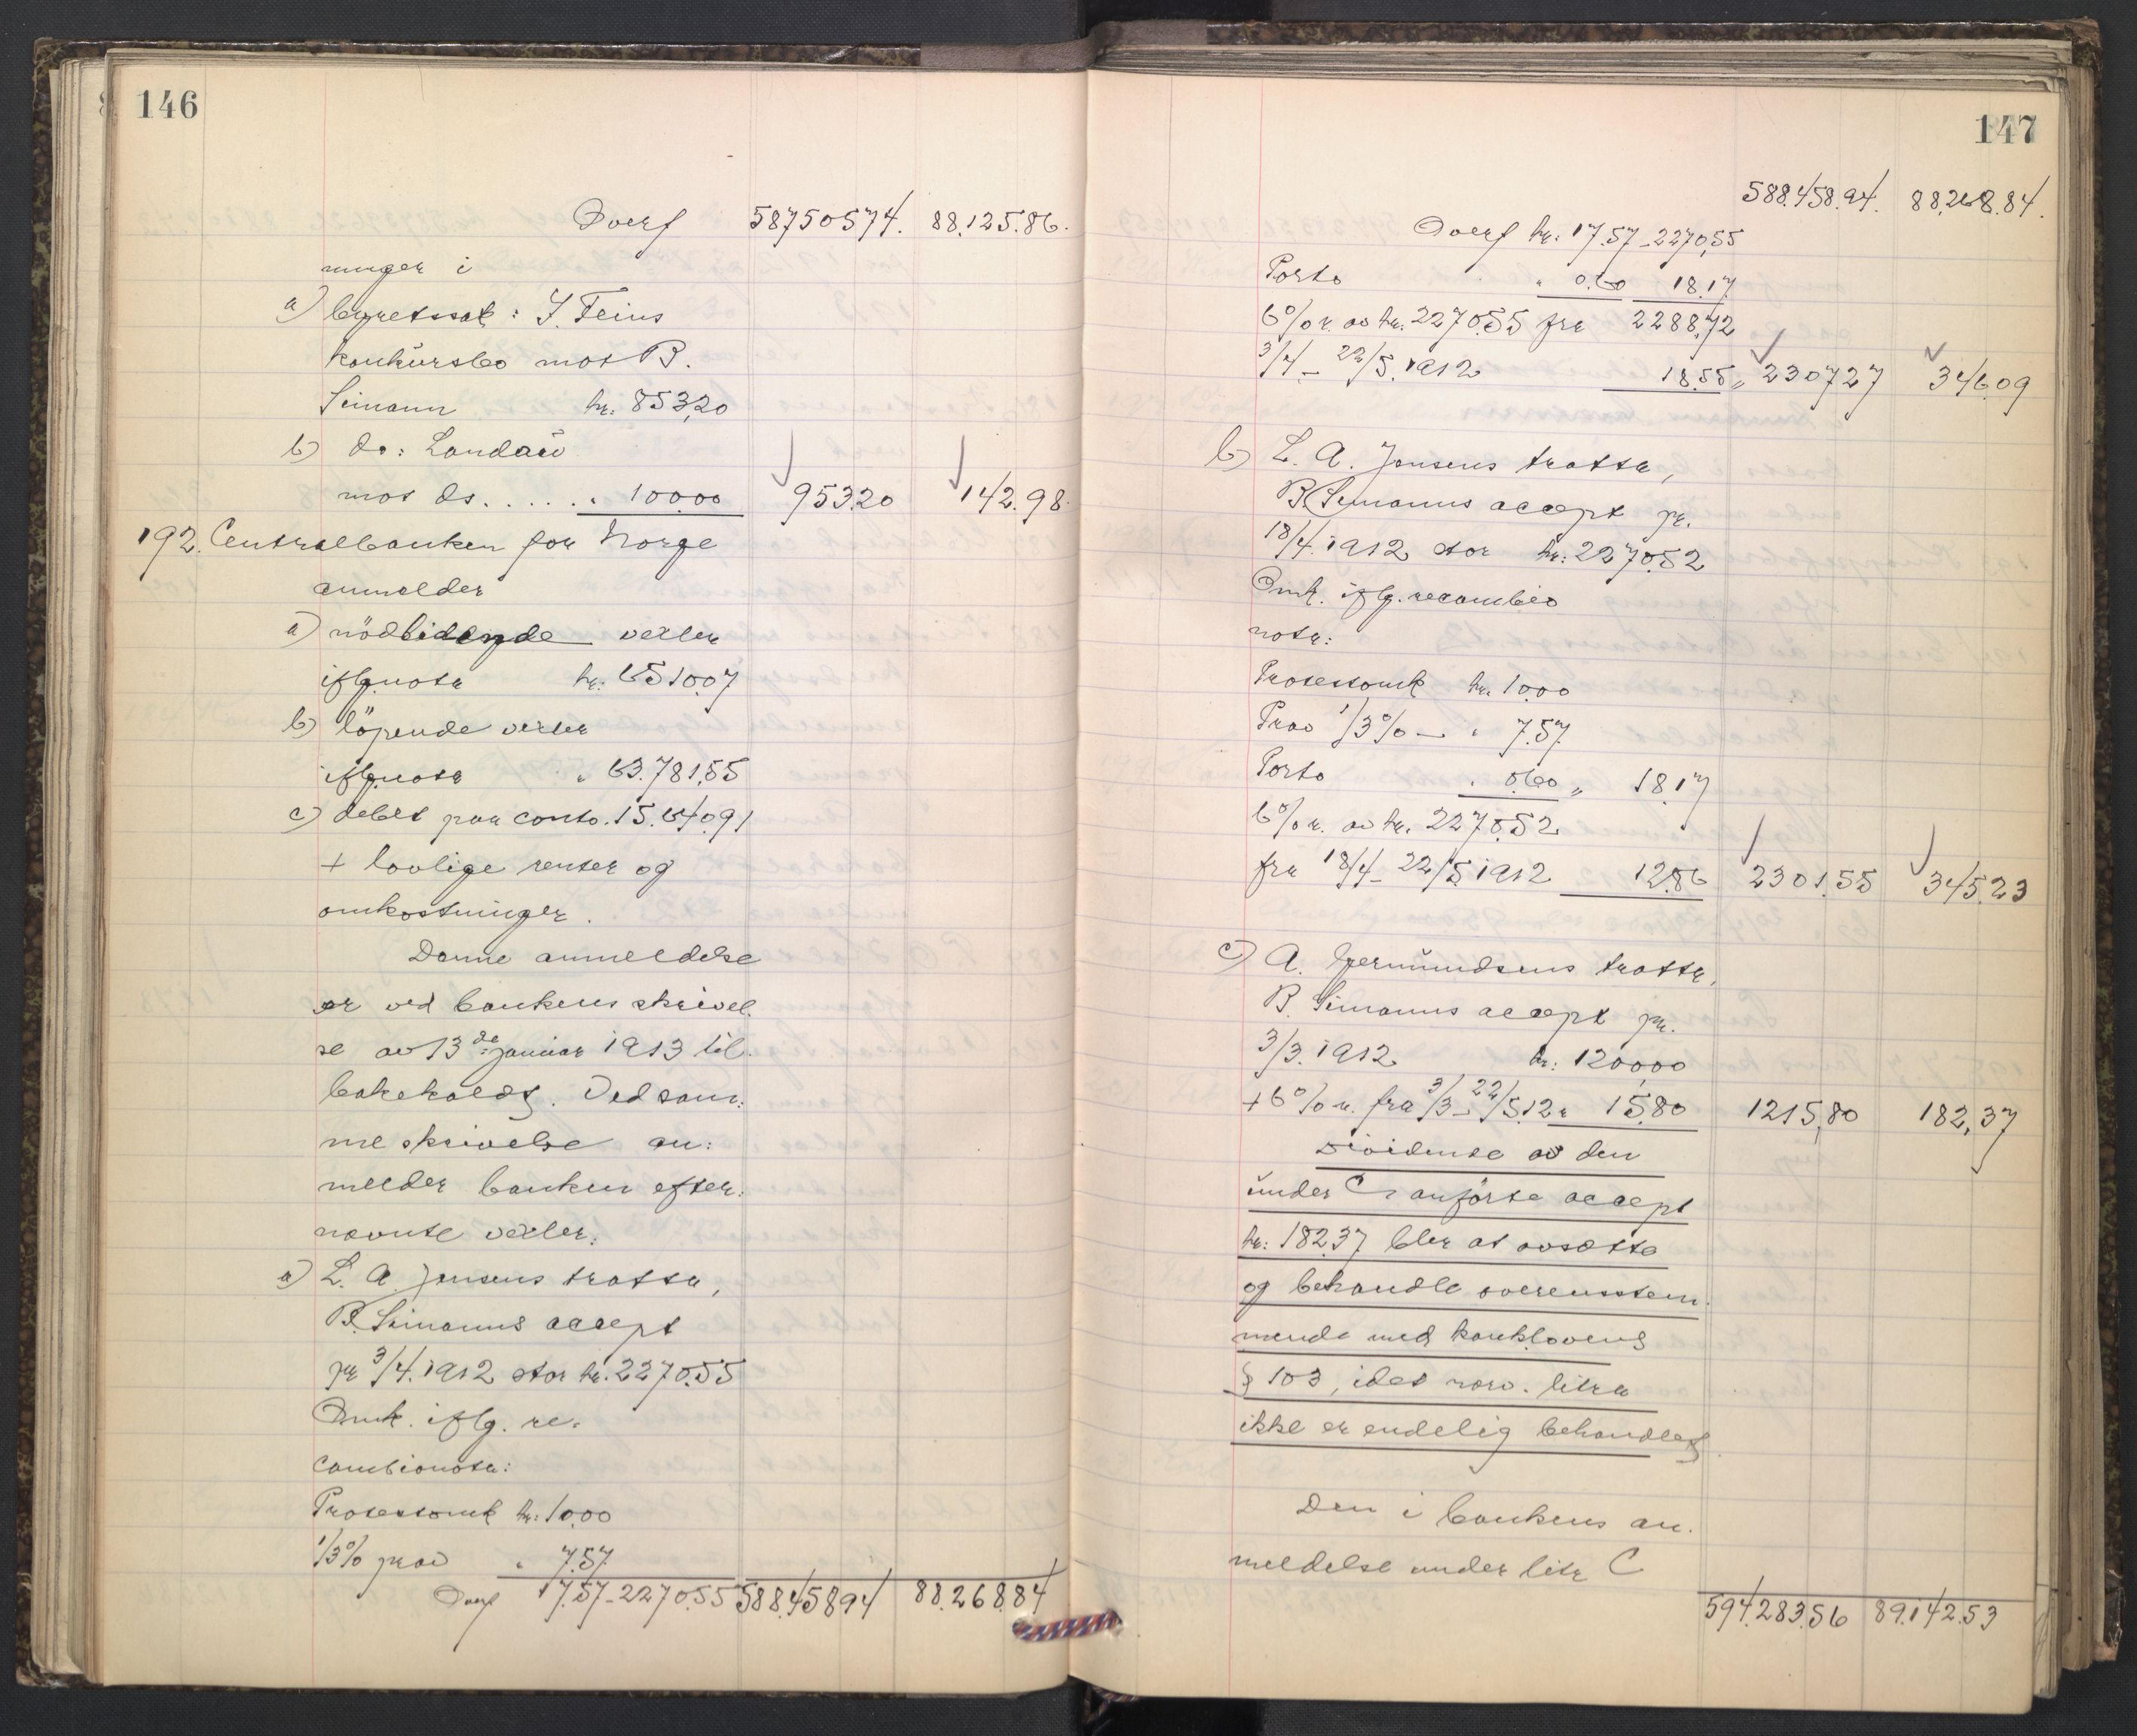 146
Overf 587505.74. 88.125.86.
ninger i
a) byretssak: I. Feins
konkursbo mot B.
Simann kr: 853,20
b) do: Landau
mot ds. . . . . " 100.00 953.20 142.98.
192. Centralbanken for Norge
anmelder
a) nödlidende vexler
iflg nota kr: 6510.07
b) löpende vexler
iflg nota " 63.781,55
c) debet paa conto. 15.640.91
+ lovlige renter og
omkostninger.
Denne anmeldelse
er ved bankens skrivel.
se av 13de januar 1913 til.
bakekaldt. Ved sam:
me skrivelse an:
melder banken efter:
nævnte vexler:
a) L. A. Jensens tratta,
B. Simanns accept
pr 3/4. 1912 stor kr. 2270.55
Omk. iflg. re.
cambionota:
Protestomk kr: 10.00
1/3% prov " 7.57
Overf 17.57 - 2270.55 588.458.94 88.268.84
147
588.458.94. 88,268.84.
Overf kr: 17.57 - 2270,55
Porto " 0.60 18.17
6% r. av kr. 2270.55 fra 2288,72
3/4 - 22/5. 1912 18.55 " 2307.27 346.09
b) L. A. Jensens tratta,
B. Simanns accept pr.
18/4. 1912 stor kr: 2270.52
Omk. iflg. recambio
nota:
Protestomk kr. 10.00
Prov 1/3% — " 7.57
Porto " 0.60 " 18.17
6% r. av kr. 2270.52
fra 18/4 - 22/5 1912 12.86 2301.55 345.23
c) A. Germundsens tratta,
B. Simanns accept pr.
3/3. 1912 kr: 1200,00
+ 6% r. fra 3/3 - 22/5.12 " 15.80 1215,80 182,37
Dividende av den
under C anförte accept
kr: 182.37 blir at avsætte
og behandle overensstem.
mende med konkslovens
§ 103, idet nævn. litra
ikke er endelig behandlet.
Den i bankens an.
meldelse under litr C
594.283.56 89.142.53